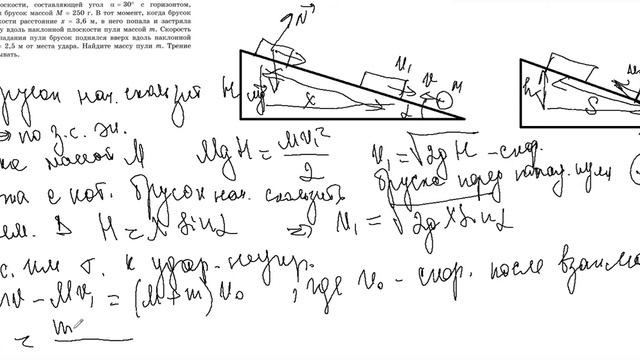 лоскости, составляющей угол α = 30° с горизонтом,
брусок массой M = 250 г. В тот момент, когда брусок
кости расстояние x = 3,6 м, в него попала и застряла
у вдоль наклонной плоскости пуля массой m. Скорость
падания пули брусок поднялся вверх вдоль наклонной
= 2,5 м от места удара. Найдите массу пули m. Трение
ывать.
N
V₁ V M
Mg x α
h S
русок нач. скользит H
⇒ по з.с. эн.
массой M MgH = MV₁²/2 V₁ = √2gH - скор.
с кот. брусок нач. скользить бруска перед попад. пули
H = x sin α ⇒ V₁ = √2gx sin α
с. им т. к удар - неупр.
mv - MV₁ = (M + m) V₀ , где V₀ - скор. после взаим
= m